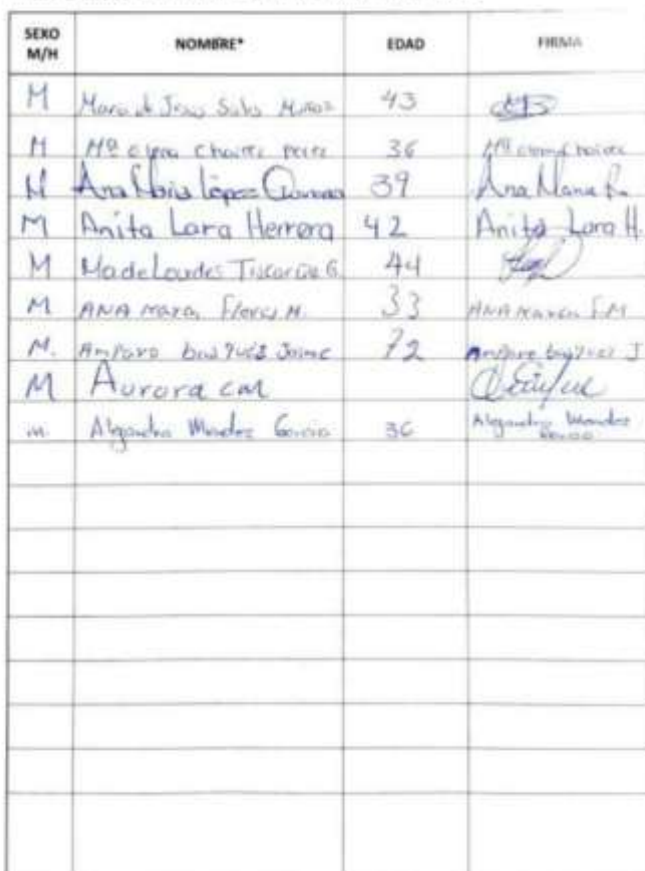 SEXO M/H NOMBRE* EDAD FIRMA
M Maria de Jesus Salas Muñoz 43
M Mª elena Chaires perez 36 Mª elena Chaires
M Ana Maria López 39 Ana Maria L.
M Anita Lara Herrera 42 Anita Lara H.
M Ma de Lourdes G. 44
M ANA maria Flores M. 33 ANA maria F.M
M. Amparo basques Jaime 72 Amparo basques J
M Aurora cm
m. Alejandra Mendez Garcia 36 Alejandra Mendez